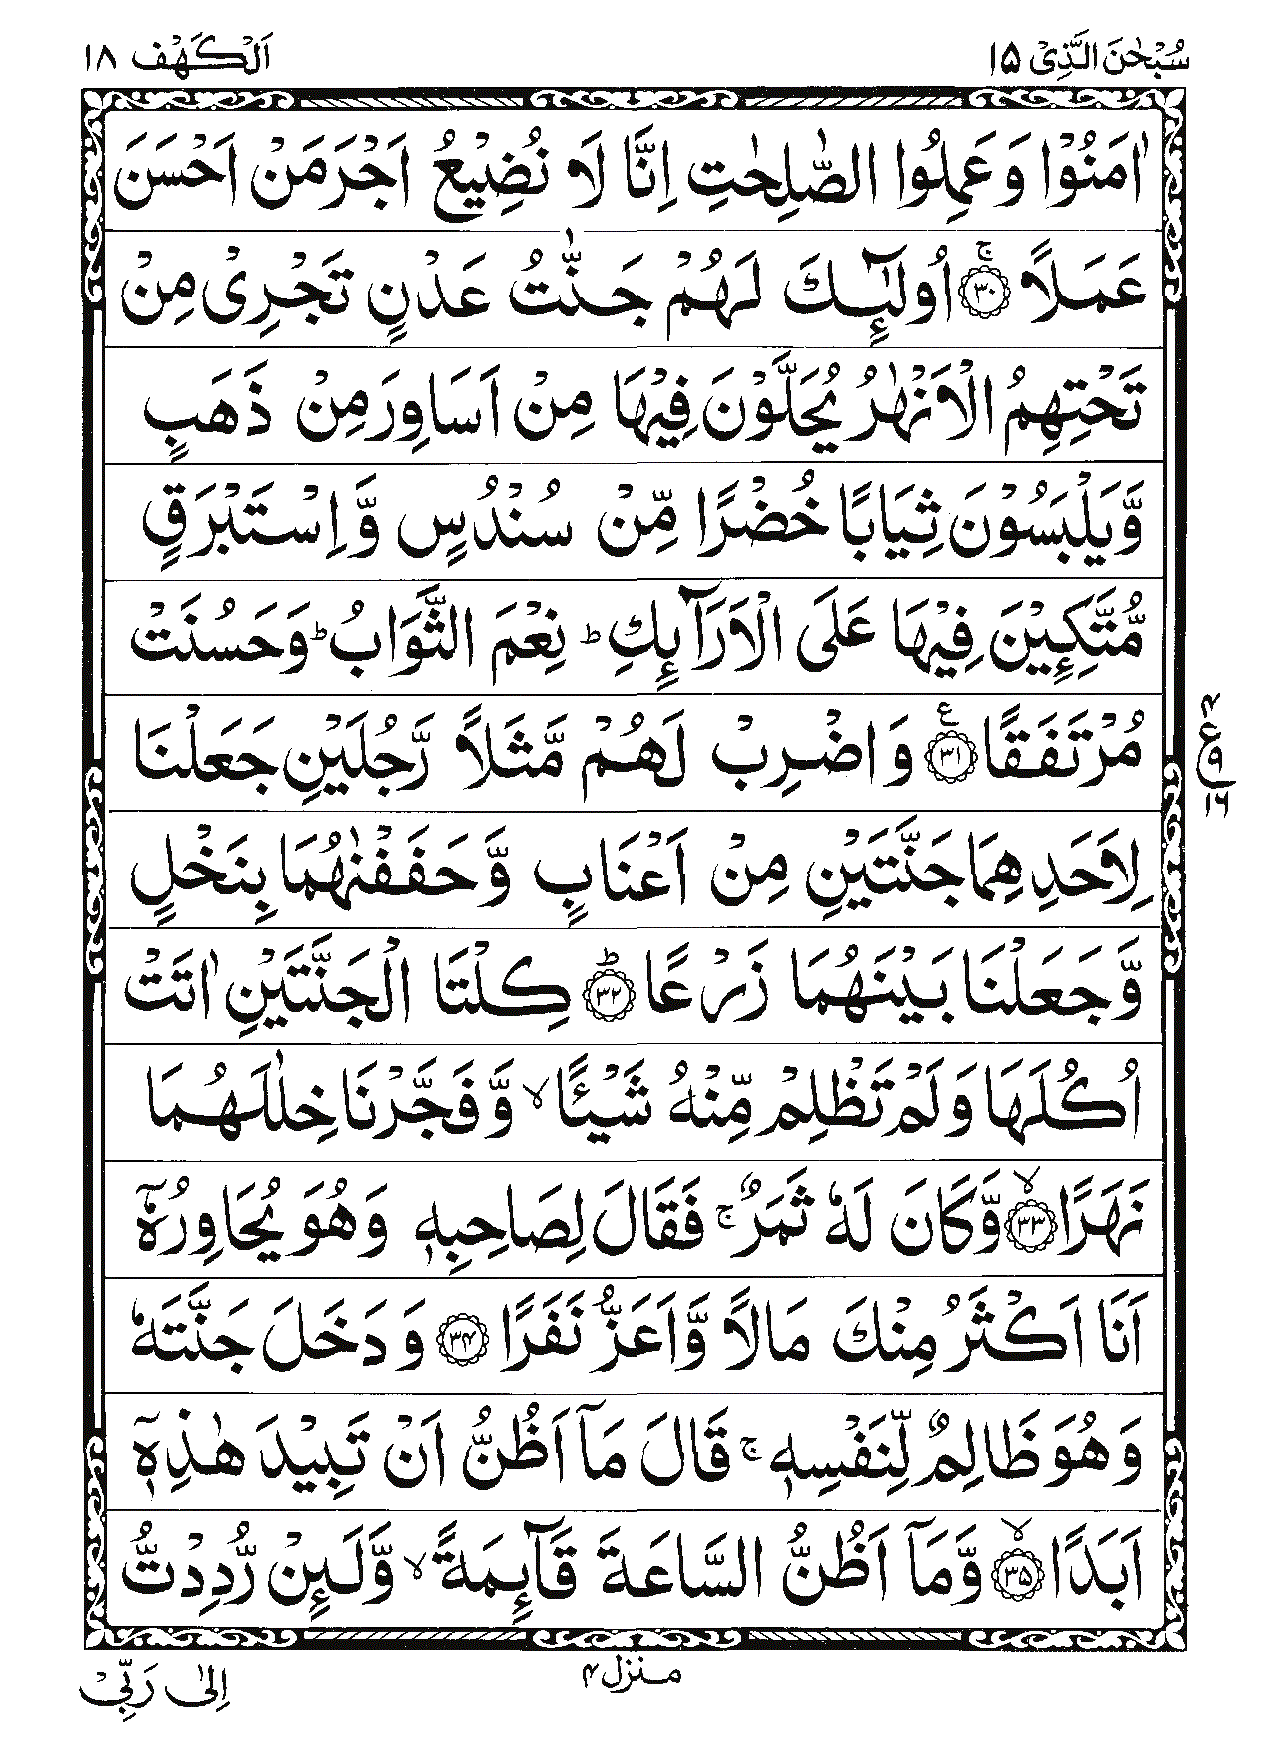 سُبْحٰنَ الَّذِیْ ۱۵
اَلْكَهْف ۱۸
اٰمَنُوْا وَعَمِلُوا الصّٰلِحٰتِ اِنَّا لَا نُضِيْعُ اَجْرَ مَنْ اَحْسَنَ
عَمَلًا ۚ۝۳۰ اُولٰٓئِكَ لَهُمْ جَنّٰتُ عَدْنٍ تَجْرِیْ مِنْ
تَحْتِهِمُ الْاَنْهٰرُ يُحَلَّوْنَ فِيْهَا مِنْ اَسَاوِرَ مِنْ ذَهَبٍ
وَّيَلْبَسُوْنَ ثِيَابًا خُضْرًا مِّنْ سُنْدُسٍ وَّاِسْتَبْرَقٍ
مُّتَّكِـِٕيْنَ فِيْهَا عَلَی الْاَرَآئِكِ ؕ نِعْمَ الثَّوَابُ ؕ وَحَسُنَتْ
مُرْتَفَقًا ۝۳۱ع وَاضْرِبْ لَهُمْ مَّثَلًا رَّجُلَيْنِ جَعَلْنَا
ع ۴ ۹ ۱۶
لِاَحَدِهِمَا جَنَّتَيْنِ مِنْ اَعْنَابٍ وَّحَفَفْنٰهُمَا بِنَخْلٍ
وَّجَعَلْنَا بَيْنَهُمَا زَرْعًا ؕ۝۳۲ كِلْتَا الْجَنَّتَيْنِ اٰتَتْ
اُكُلَهَا وَلَمْ تَظْلِمْ مِّنْهُ شَيْـًٔا ۙ وَّفَجَّرْنَا خِلٰلَهُمَا
نَهَرًا ۙ۝۳۳ وَّكَانَ لَهٗ ثَمَرٌ ۚ فَقَالَ لِصَاحِبِهٖ وَهُوَ يُحَاوِرُهٗٓ
اَنَا اَكْثَرُ مِنْكَ مَالًا وَّاَعَزُّ نَفَرًا ۝۳۴ وَدَخَلَ جَنَّتَهٗ
وَهُوَ ظَالِمٌ لِّنَفْسِهٖ ۚ قَالَ مَاۤ اَظُنُّ اَنْ تَبِيْدَ هٰذِهٖۤ
اَبَدًا ۙ۝۳۵ وَّمَاۤ اَظُنُّ السَّاعَةَ قَآئِمَةً ۙ وَّلَئِنْ رُّدِدْتُّ
منزل ۴
اِلٰی رَبِّیْ